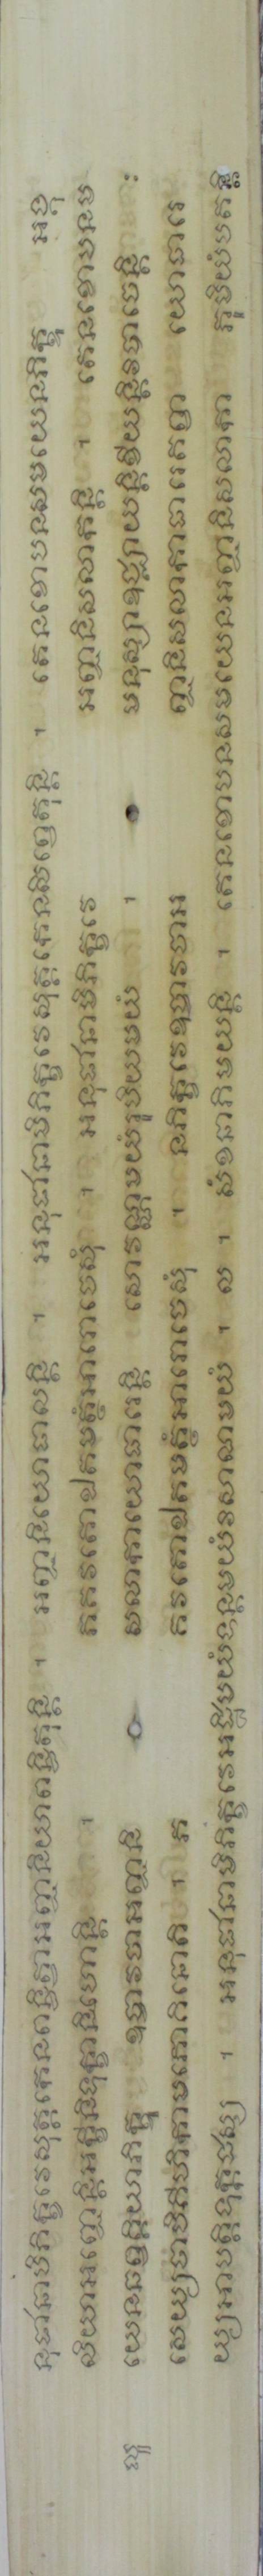 នុជានាមិភិក្ខវេសុត្តកេនពន្ធិត្វាអញ្ជនិយាពន្ធិតុន្តិ ។ អញ្ជនិយោធាលន្តិ ។ អនុជានាមិភិក្ខវេសុត្តកេនសិព្វេតុន្តិ ។ តេនខោបនសមយេនភិក្ខូ អង្គុ
លិយាអញ្ជេន្តិអក្ខីនិទុក្ខានិហោន្តិ ។ ភគវតោឯតមត្ថំអារោចេសុំ ។ អនុជានាមិភិក្ខវេ អញ្ជនិសលាកន្តិ ។ តេនខោបនប
យេនឆព្វគ្គិយាភិក្ខូ ឧច្ចាវចាអញ្ជនិ សលាកាយោធារេន្តិ សោវណ្ណមយំរូបិយមយំ ។ មនុស្សាឧជ្ឈាយន្តិខីយន្តិវិបាចេន្តិ ៈ
សេយ្យថាបិគីហិកាមភោគិនោតិ ។ ភ គវតោឯតមត្ថំអារោចេសុំ ។ នភិក្ខវេឧច្ចាវចាអ ញ្ជនិសលាកាធារេតព្វា យោធារេ
យ្យអាបត្តិទុក្កដស្ស ។ អនុជានាមិភិក្ខវេអដ្ឋិមយំទន្តមយំវិសាណមយំ ។ ល ។ សំខនាភិមយន្តិ ។ តេនខោបនសមយេនអញ្ជនិសលាកា ភូមិយំបតន្តិ